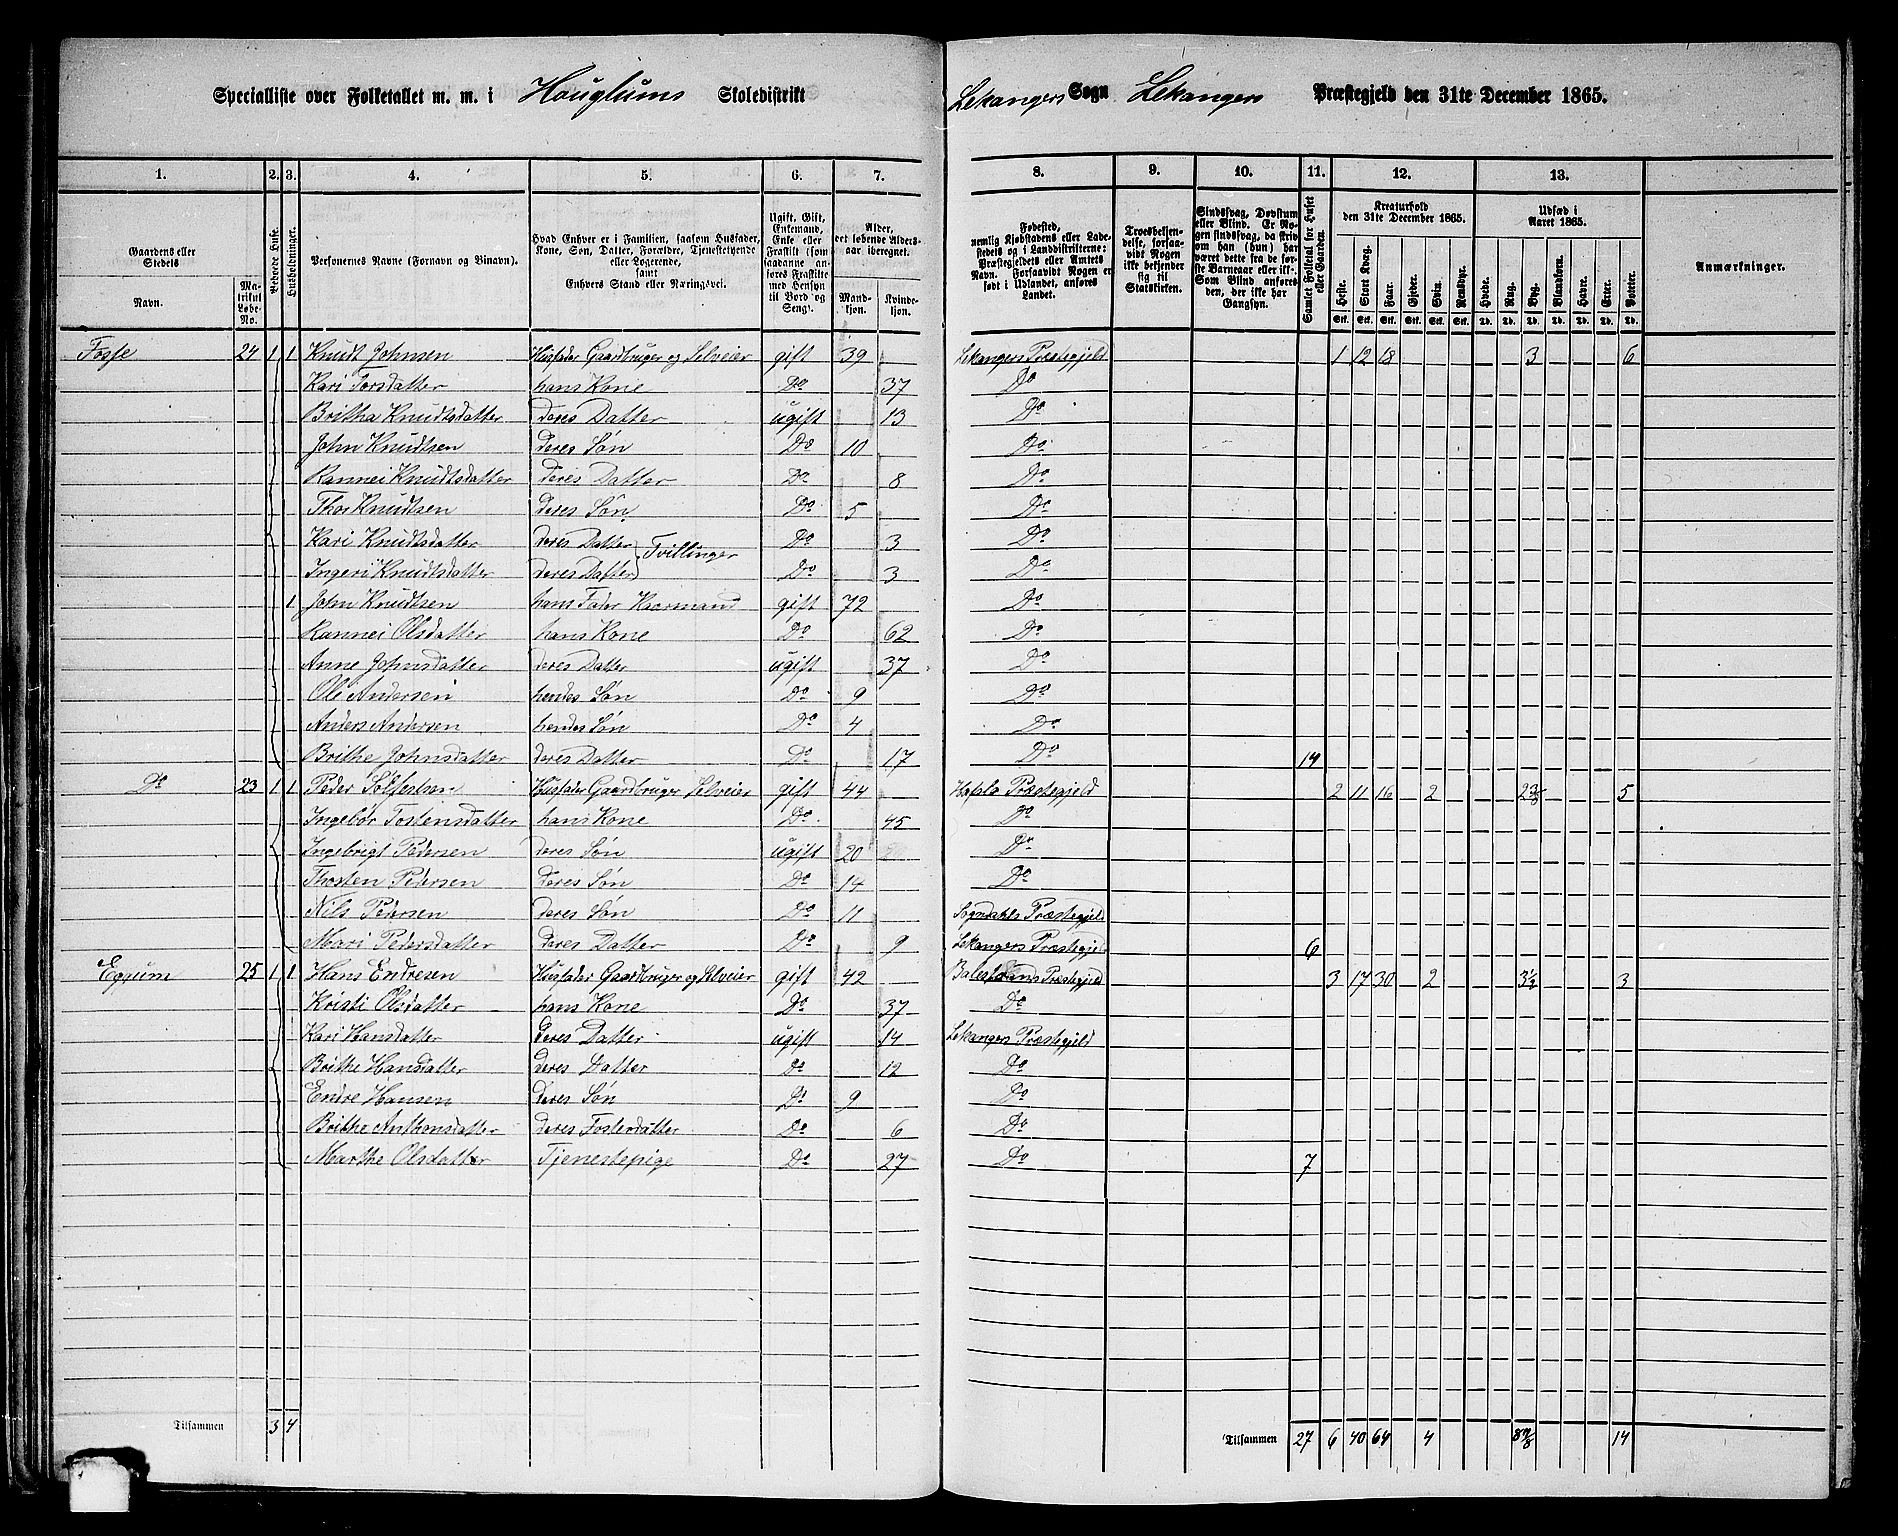 Specialliste over Folketallet m. m. i Houglums Skoledistrikt Lekangers Sogn Lekangers Præstegjeld den 31te December 1865.
1. 2. 3. 4. 5. 6. 7. 8. 9. 10. 11. 12. 13.
Gaardens eller Stedets
Navn.
Matrikul Løbe-No.
Beboede Huse.
Husholdninger.
Personernes Navne (Fornavn og Binavn).
Hvad Enhver er i Familien, saasom Husfader, Kone, Søn, Datter, Forældre, Tjenestetyende eller Logerende, samt Enhvers Stand eller Næringsvei.
Ugift, Gift, Enkemand, Enke eller Fraskilt (som saadanne anføres Fraskilte med Hensyn til Bord og Seng).
Alder, det løbende Alders-aar iberegnet.
Mand-kjøn. Kvinde-kjøn.
Fødested, nemlig Kjøbstadens eller Ladestedets og i Landdistrikterne: Præstegjeldets eller Amtets Navn. Forsaavidt Nogen er født i Udlandet, anføres Landet.
Troesbekjendelse, forsaavidt Nogen ikke bekjender sig til Statskirken.
Sindssvag, Døvstum eller Blind. Er Nogen sindssvag, da skrives om han (hun) har været dette fra de første Barneaar eller ikke. Som Blind anføres den, der ikke har Gangsyn.
Samlet Folketal for Huset eller Gaarden.
Kreaturhold den 31te December 1865.
Heste. Stort Kvæg. Faar. Gjeder. Svin. Rensdyr.
Udsæd i Aaret 1865.
Hvede. Rug. Byg. Blandkorn. Havre. Erter. Poteter.
Anmærkninger.
Fosse 24 1 1 Knudt Johnsen Husfader Gaardbruger og Selveier gift 39 Lekangers Præstegjeld 1 12 18 3 6
Kari Torsdatter hans Kone Do 37 Do
Britha Knudtsdatter deres Datter ugift 13 Do
John Knudtsen deres Søn Do 10 Do
Rannei Knudtsdatter deres Datter Do 8 Do
Thor Knudtsen deres Søn Do 5 Do
Kari Knudtsdatter deres Datter Tvillinger Do 3 Do
Ingeri Knudtsdatter deres Datter Do 3 Do
1 John Knudtsen hans Fader Kaarmand gift 72 Do
Rannei Olsdatter hans Kone Do 62 Do
Anne Johnsdatter deres Datter ugift 37 Do
Ole Andersen hendes Søn Do 9 Do
Anders Andersen hendes Søn Do 4 Do
Brithe Johnsdatter deres Datter Do 17 Do 14
Do 23 1 1 Peder Husfader Gaardbruger Selveier gift 44 Hafslo Præstegjeld 2 11 16 2 5
Ingebor Tostensdatter hans Kone Do 45 Do
Ingebrigt Pedersen deres Søn ugift 20 Do
Thosten Pedersen deres Søn Do 14 Do
Nils Pedersen deres Søn Do 11 Sogndahls Præstegjeld
Mari Pedersdatter deres Datter Do 9 Lekangers Præstegjeld 6
Eggum 25 1 1 Hans Endresen Husfader Gaardbruger og Selveier gift 42 Balestrands Præstegjeld 3 17 30 2 3½ 3
Kristi Olsdatter hans Kone Do 37 Do
Kari Hansdatter deres Datter ugift 14 Lekangers Præstegjeld
Brithe Hansdatter deres Datter Do 12 Do
Endre Hansen deres Søn Do 9 Do
Brithe Anthonsdatter deres Fosterdatter Do 6 Do
Marthe Olsdatter Tjenestepige Do 27 Do 7
Tilsammen 3 4 Tilsammen 27 6 40 64 4 14